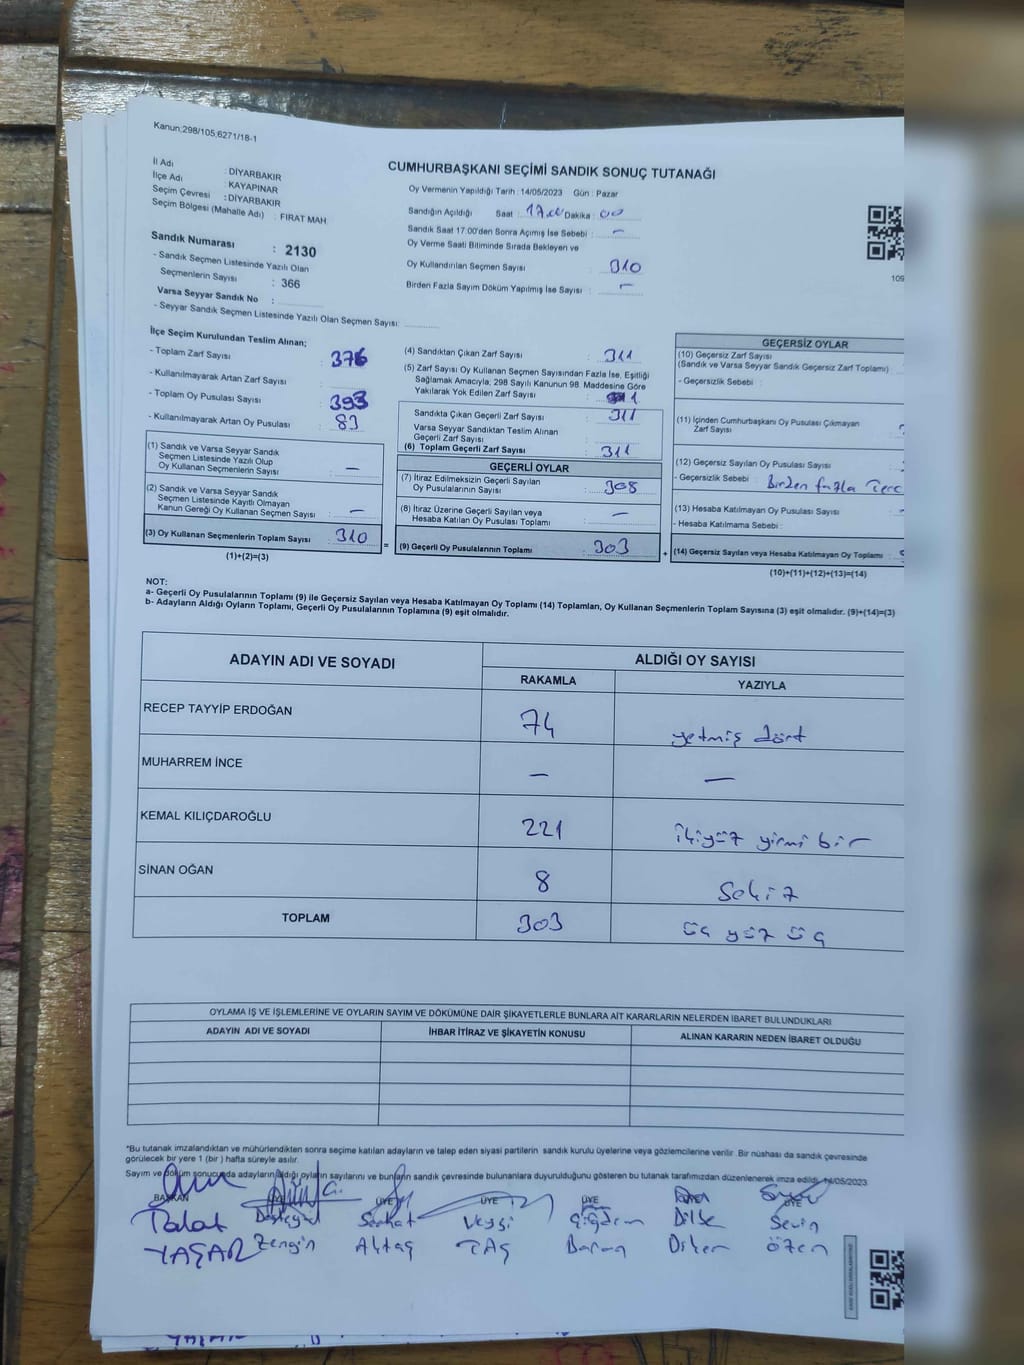 Kanun;298/105;6271/18-1
CUMHURBAŞKANI SEÇİMİ SANDIK SONUÇ TUTANAĞI
İl Adı : DİYARBAKIR
İlçe Adı : KAYAPINAR
Seçim Çevresi : DİYARBAKIR
Seçim Bölgesi (Mahalle Adı) : FIRAT MAH
Sandık Numarası : 2130
- Sandık Seçmen Listesinde Yazılı Olan
Seçmenlerin Sayısı : 366
Varsa Seyyar Sandık No :
- Seyyar Sandık Seçmen Listesinde Yazılı Olan Seçmen Sayısı:
Oy Vermenin Yapıldığı Tarih : 14/05/2023 Gün : Pazar
Sandığın Açıldığı Saat : 17.00 Dakika : 00
Sandık Saat 17.00'den Sonra Açımış İse Sebebi : -
Oy Verme Saati Bitiminde Sırada Bekleyen ve
Oy Kullandırılan Seçmen Sayısı : 310
Birden Fazla Sayım Döküm Yapılmış İse Sayısı : -
109
İlçe Seçim Kurulundan Teslim Alınan;
- Toplam Zarf Sayısı : 376
- Kullanılmayarak Artan Zarf Sayısı :
- Toplam Oy Pusulası Sayısı : 393
- Kullanılmayarak Artan Oy Pusulası : 83
(1) Sandık ve Varsa Seyyar Sandık
Seçmen Listesinde Yazılı Olup
Oy Kullanan Seçmenlerin Sayısı : —
(2) Sandık ve Varsa Seyyar Sandık
Seçmen Listesinde Kayıtlı Olmayan
Kanun Gereği Oy Kullanan Seçmen Sayısı : —
(3) Oy Kullanan Seçmenlerin Toplam Sayısı : 310
(1)+(2)=(3)
=
(4) Sandıktan Çıkan Zarf Sayısı : 311
(5) Zarf Sayısı Oy Kullanan Seçmen Sayısından Fazla İse, Eşitliği
Sağlamak Amacıyla; 298 Sayılı Kanunun 98. Maddesine Göre
Yakılarak Yok Edilen Zarf Sayısı : 1
Sandıkta Çıkan Geçerli Zarf Sayısı : 311
Varsa Seyyar Sandıktan Teslim Alınan
Geçerli Zarf Sayısı :
(6) Toplam Geçerli Zarf Sayısı : 311
GEÇERLİ OYLAR
(7) İtiraz Edilmeksizin Geçerli Sayılan
Oy Pusulalarının Sayısı : 308
(8) İtiraz Üzerine Geçerli Sayılan veya
Hesaba Katılan Oy Pusulası Toplamı : —
(9) Geçerli Oy Pusulalarının Toplamı : 303
+
GEÇERSİZ OYLAR
(10) Geçersiz Zarf Sayısı
(Sandık ve Varsa Seyyar Sandık Geçersiz Zarf Toplamı) :
- Geçersizlik Sebebi :
(11) İçinden Cumhurbaşkanı Oy Pusulası Çıkmayan
Zarf Sayısı :
(12) Geçersiz Sayılan Oy Pusulası Sayısı :
- Geçersizlik Sebebi : Birden fazla
(13) Hesaba Katılmayan Oy Pusulası Sayısı :
- Hesaba Katılmama Sebebi :
(14) Geçersiz Sayılan veya Hesaba Katılmayan Oy Toplamı :
(10)+(11)+(12)+(13)=(14)
NOT:
a- Geçerli Oy Pusulalarının Toplamı (9) ile Geçersiz Sayılan veya Hesaba Katılmayan Oy Toplamı (14) Toplamları, Oy Kullanan Seçmenlerin Toplam Sayısına (3) eşit olmalıdır. (9)+(14)=(3)
b- Adayların Aldığı Oyların Toplamı, Geçerli Oy Pusulalarının Toplamına (9) eşit olmalıdır.
ADAYIN ADI VE SOYADI ALDIĞI OY SAYISI
RAKAMLA YAZIYLA
RECEP TAYYİP ERDOĞAN 74 yetmiş dört
MUHARREM İNCE — —
KEMAL KILIÇDAROĞLU 221 ikiyüz yirmi bir
SİNAN OĞAN 8 Sekiz
TOPLAM 303 üç yüz üç
OYLAMA İŞ VE İŞLEMLERİNE VE OYLARIN SAYIM VE DÖKÜMÜNE DAİR ŞİKAYETLERLE BUNLARA AİT KARARLARIN NELERDEN İBARET BULUNDUKLARI
ADAYIN ADI VE SOYADI İHBAR İTİRAZ VE ŞİKAYETİN KONUSU ALINAN KARARIN NEDEN İBARET OLDUĞU
*Bu tutanak imzalandıktan ve mühürlendikten sonra seçime katılan adayların ve talep eden siyasi partilerin sandık kurulu üyelerine veya gözlemcilerine verilir. Bir nüshası da sandık çevresinde
görülecek bir yere 1 (bir ) hafta süreyle asılır.
Sayım ve döküm sonucunda adayların aldığı oyların sayılarını ve bunların sandık çevresinde bulunanlara duyurulduğunu gösteren bu tutanak tarafımızdan düzenlenerek imza edildi. 14/05/2023
BAŞKAN ÜYE ÜYE ÜYE ÜYE ÜYE
Talat Serhat Veysi Çiğdem Sevin
YAŞAR Zengin Aktaş TAŞ Baran Özen